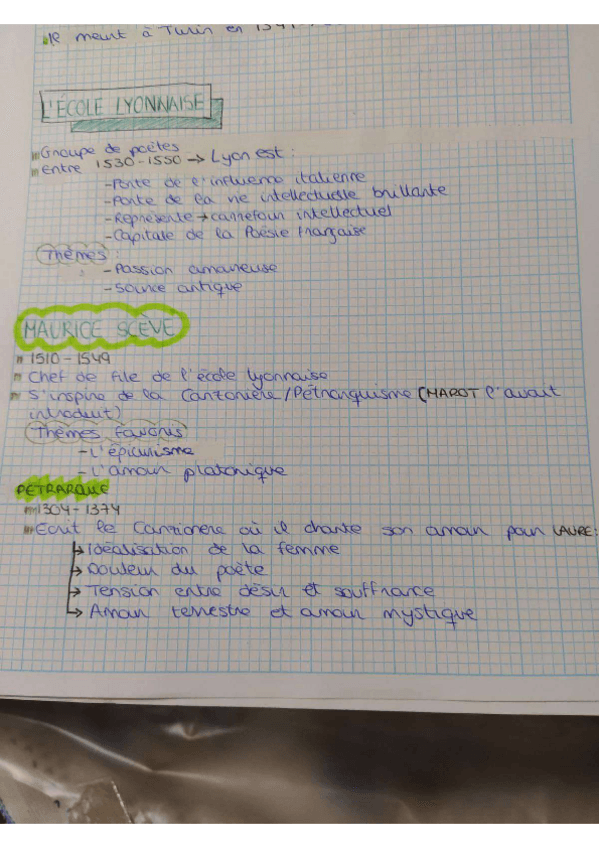 Il meurt à Turin en
L'ÉCOLE LYONNAISE
Groupe de poètes
Entre 1530-1550 → Lyon est :
- Porte de l'influence italienne
- Porte de la vie intellectuelle brillante
- Représente → carrefour intellectuel
- Capitale de la Poésie française
Thèmes :
- Passion amoureuse
- Source antique
MAURICE SCÈVE
1510-1549
Chef de file de l'école lyonnaise
S'inspire de la Cantoniere/Pétrarquisme (MAROT l'avait
introduit)
Thèmes favoris
- L'épicurisme
- L'amour platonique
PETRARQUE
1304-1374
Ecrit le Canzionere où il chante son amour pour LAURE:
↳ Idéalisation de la femme
↳ Douleur du poète
↳ Tension entre désir et souffrance
↳ Amour terrestre et amour mystique